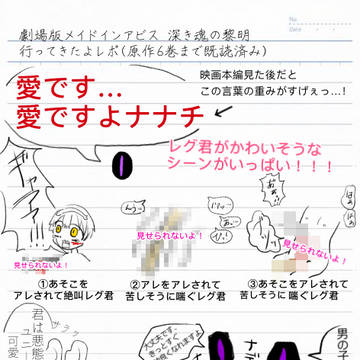 No.
Date
劇場版メイドインアビス 深き魂の黎明
行ってきたよレポ(原作6巻まで既読済み)
愛です…
愛ですよナナチ
映画本編見た後だと
この言葉の重みがすげぇっ…!
レグ君がかわいそうな
シーンがいっぱい!!!
ギャアアア!!!
見せられないよ!
見せられないよ!
見せられないよ!
①あそこを
アレされて絶叫レグ君
②アレをアレされて
苦しそうに喘ぐレグ君
③あそこをアレされて
苦しそうに喘ぐレグ君
君は悪態
ユニー
可愛
サラッ
大丈夫です
きっとすぐ
良くなれますよ
男の子